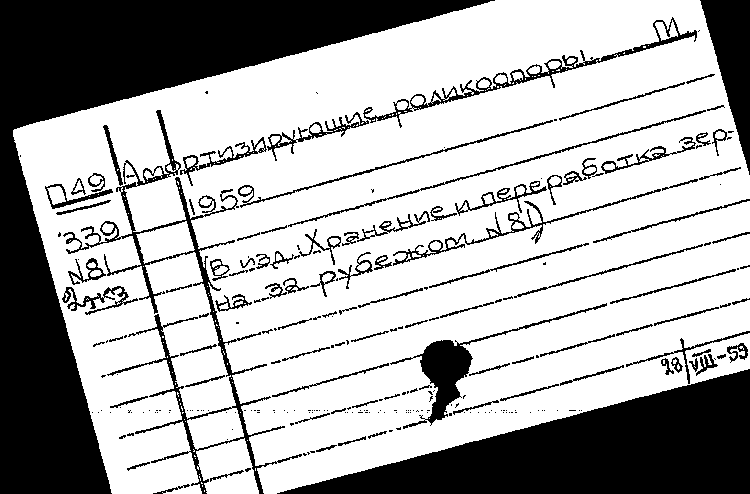 П49 Амортизирующие роликоопоры. М.,
339 1959.
N81 (В изд.: Хранение и переработка зер-
2экз на за рубежом. N81)
28/VIII-59